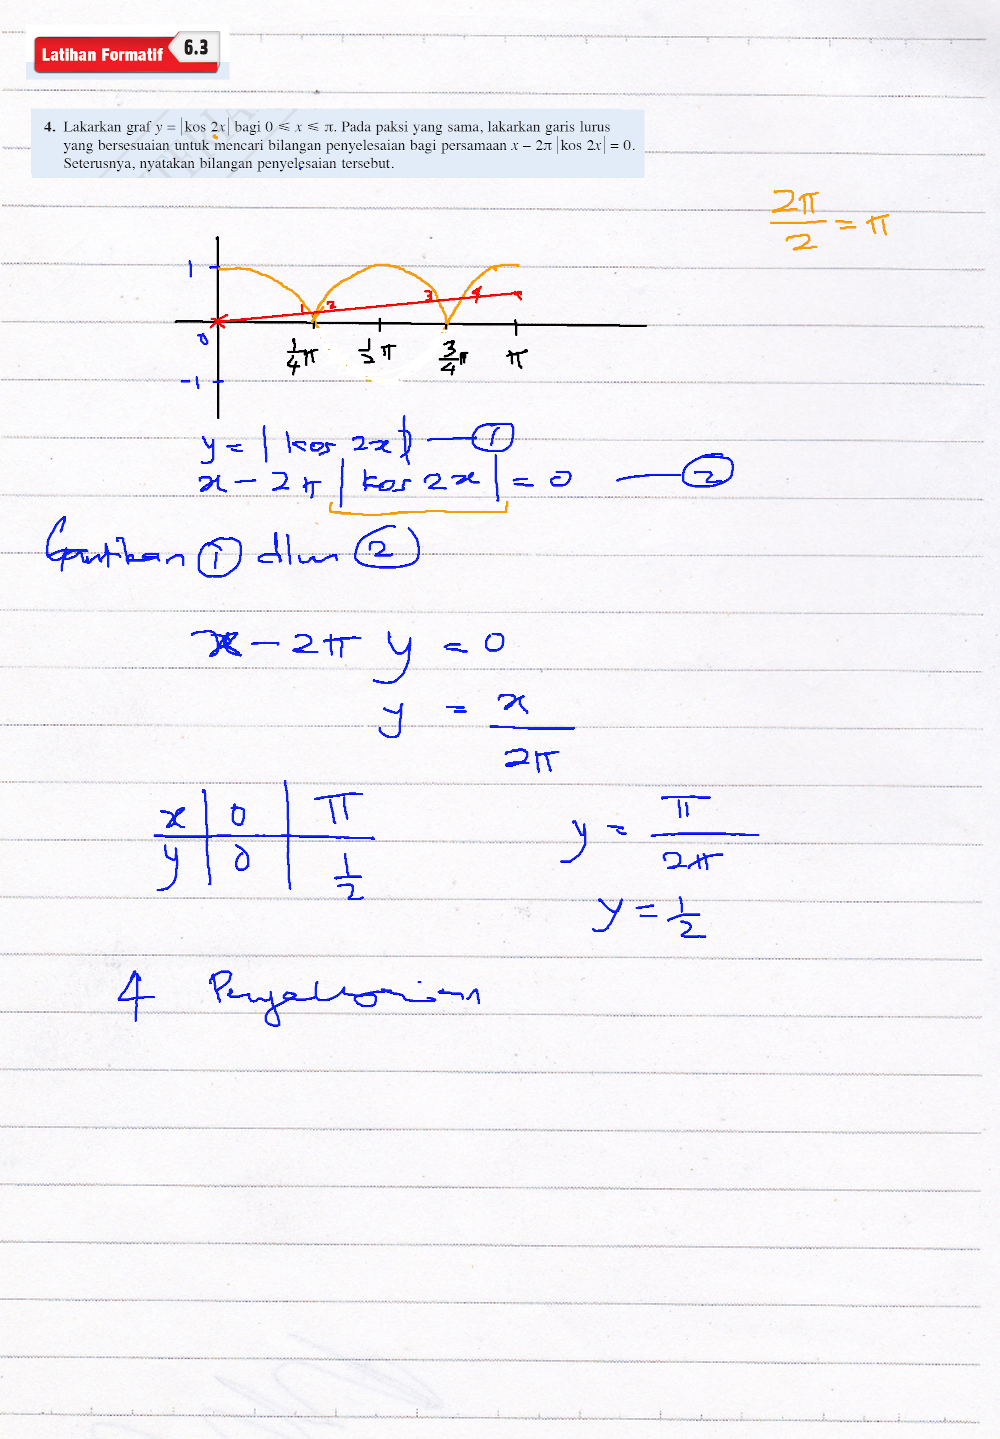 Latihan Formatif 6.3
4. Lakarkan graf y = |kos 2x| bagi 0 ⩽ x ⩽ π. Pada paksi yang sama, lakarkan garis lurus
yang bersesuaian untuk mencari bilangan penyelesaian bagi persamaan x – 2π |kos 2x| = 0.
Seterusnya, nyatakan bilangan penyelesaian tersebut.
2π/2 = π
1
1 2 3 4
0
1/4 π 1/2 π 3/4 π π
-1
y = |kos 2x| — ①
x - 2π |kos 2x| = 0 — ②
Gantikan ① dlm ②
x - 2π y = 0
y = x/2π
x | 0 | π
y | 0 | 1/2
y = π/2π
y = 1/2
4 Penyelesaian